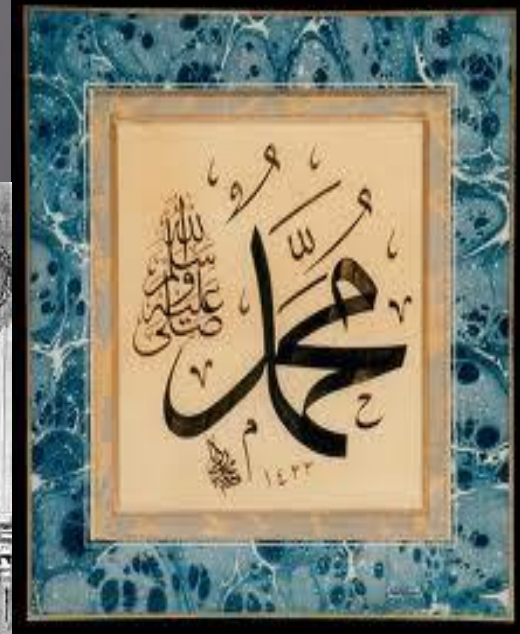 محمد
صلى الله عليه وسلم
١٤٣٣